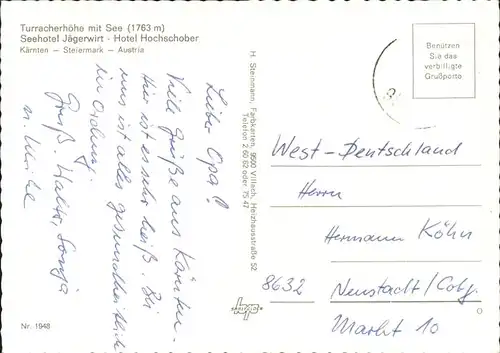 Turracherhöhe mit See (1763 m)
Seehotel Jägerwirt · Hotel Hochschober
Kärnten — Steiermark — Austria
Benützen
Sie das
verbilligte
Grußporto
Lieber Opa!
Viele Grüße aus Kärnten.
Hier ist es sehr heiß. Bei
uns ist alles gesundheitlich
in Ordnung.
Gruß. Walter, Sonja
u. Ulrike
H. Steinmann, Farbkarten, 9500 Villach, Heizhausstraße 52
Telefon 2 60 82 oder 75 47
West-Deutschland
Herrn
Hermann Köhn
8632 Neustadt/Cobg.
Markt 10
Nr. 1948